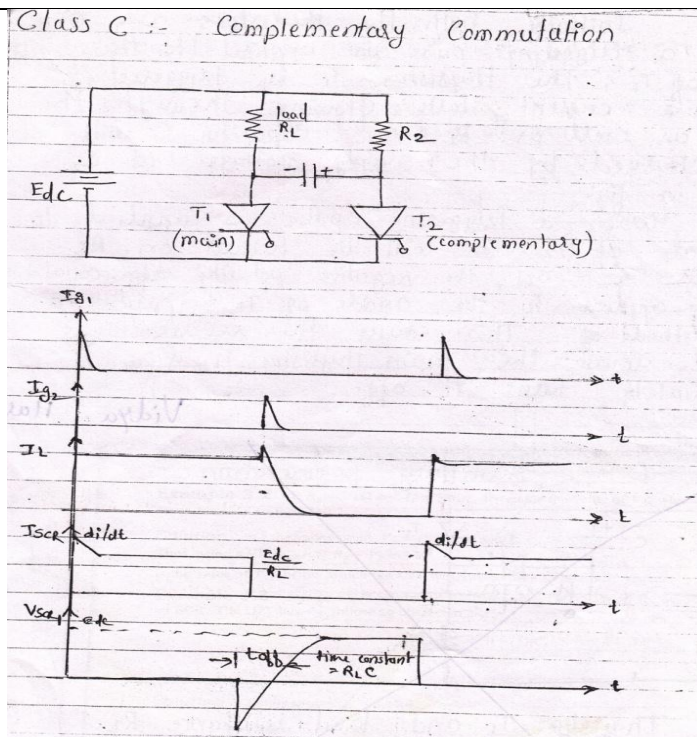 Class C :- Complementary Commutation
load
RL
R2
- +
Edc
T1
(main)
T2
(complementary)
Ig1
t
Ig2
t
IL
t
ISCR
di/dt
Edc
RL
di/dt
t
VSCR1
edc
toff
time constant
= RLC
t